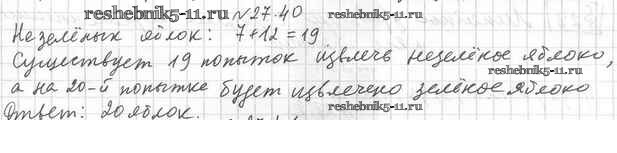 reshebnik5-11.ru №27.40 reshebnik5-11.ru
Незелёных яблок: 7+12=19
Существует 19 попыток извлечь незелёное яблоко,
reshebnik5-11.ru
а на 20-й попытке будет извлечено зелёное яблоко
reshebnik5-11.ru
Ответ: 20 яблок.
reshebnik5-11.ru